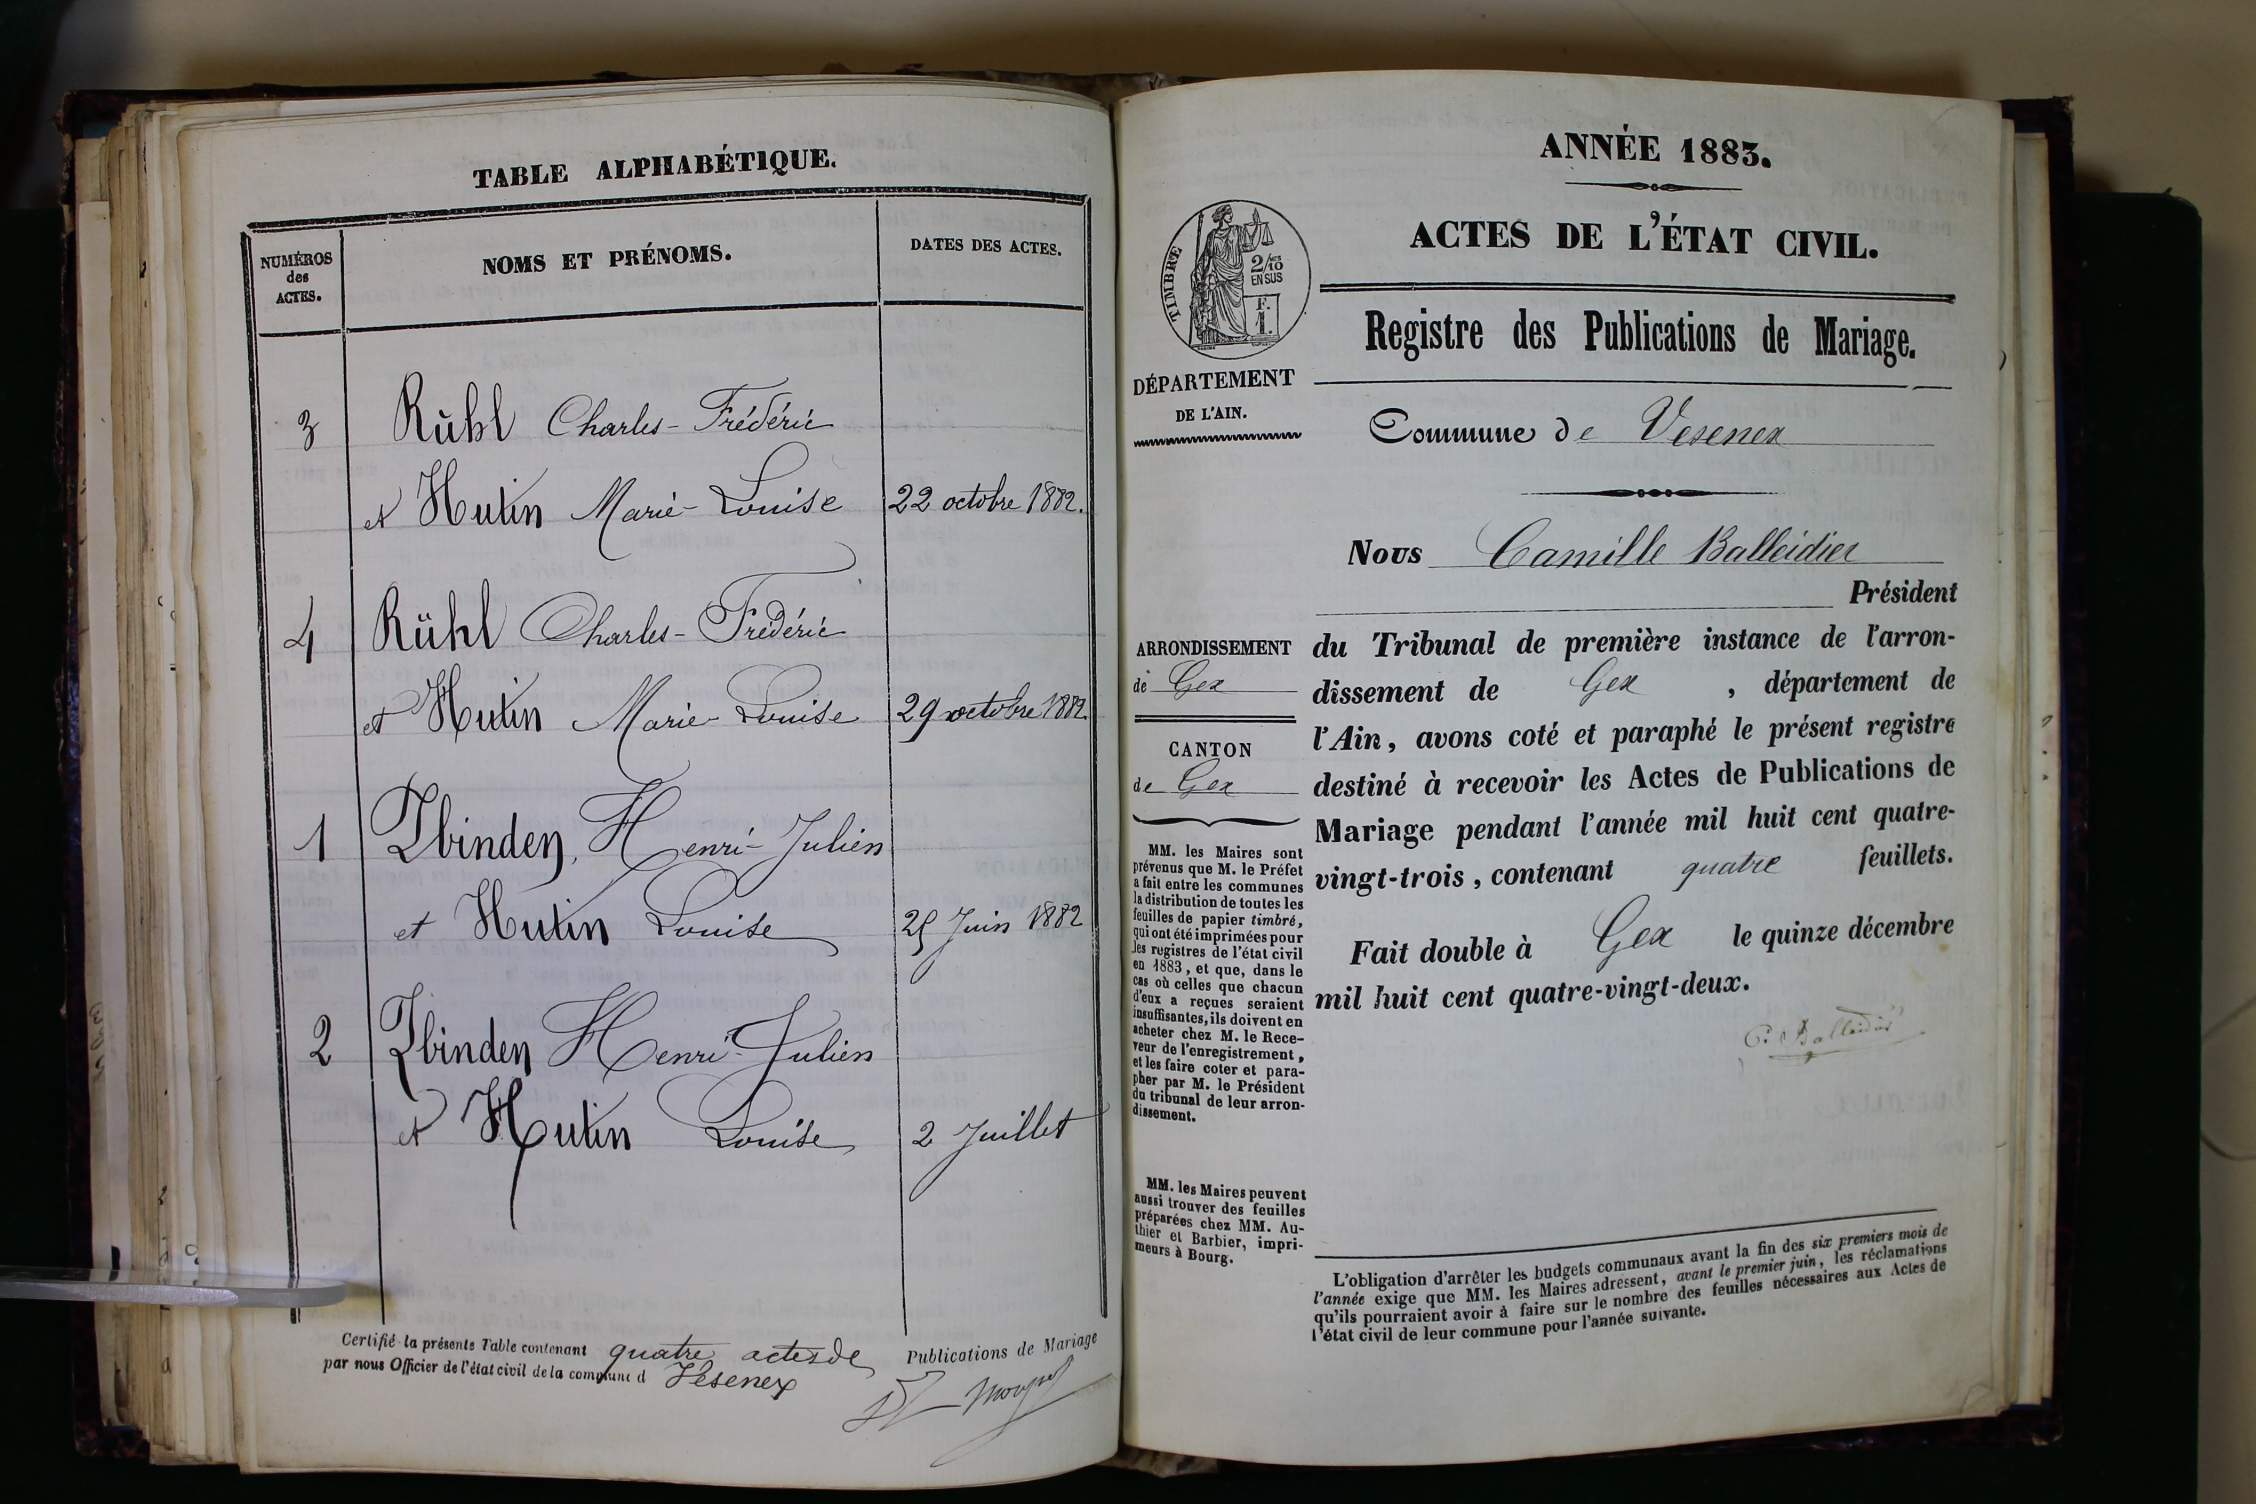 TABLE ALPHABÉTIQUE.
NUMÉROS
des
ACTES.
NOMS ET PRÉNOMS.
DATES DES ACTES.
3 Rühl Charles-Frédéric
et Hutin Marie-Louise 22 octobre 1882.
4 Rühl Charles-Frédéric
et Hutin Marie-Louise 29 octobre 1882.
1 Zbinden, Henri-Julien
et Hutin Louise 25 Juin 1882
2 Zbinden Henri-Julien
et Hutin Louise 2 Juillet
Certifié la présente Table contenant quatre actes de Publications de Mariage
par nous Officier de l'état civil de la commune d Vésenex
ANNÉE 1883.
ACTES DE L'ÉTAT CIVIL.
TIMBRE
2/10
EN SUS
F.
1.
Registre des Publications de Mariage.
DÉPARTEMENT
DE L'AIN.
Commune de Vesenex
Nous Camille Balleidier
Président
ARRONDISSEMENT
de Gex
CANTON
de Gex
du Tribunal de première instance de l'arron-
dissement de Gex, département de
l'Ain, avons coté et paraphé le présent registre
destiné à recevoir les Actes de Publications de
Mariage pendant l'année mil huit cent quatre-
vingt-trois, contenant quatre feuillets.
Fait double à Gex le quinze décembre
mil huit cent quatre-vingt-deux.
C. Balleidier
MM. les Maires sont
prévenus que M. le Préfet
a fait entre les communes
la distribution de toutes les
feuilles de papier timbré,
qui ont été imprimées pour
les registres de l'état civil
en 1883, et que, dans le
cas où celles que chacun
d'eux a reçues seraient
insuffisantes, ils doivent en
acheter chez M. le Rece-
veur de l'enregistrement,
et les faire coter et para-
pher par M. le Président
du tribunal de leur arron-
dissement.
MM. les Maires peuvent
aussi trouver des feuilles
préparées chez MM. Au-
thier et Barbier, impri-
meurs à Bourg.
L'obligation d'arrêter les budgets communaux avant la fin des six premiers mois de
l'année exige que MM. les Maires adressent, avant le premier juin, les réclamations
qu'ils pourraient avoir à faire sur le nombre des feuilles nécessaires aux Actes de
l'état civil de leur commune pour l'année suivante.